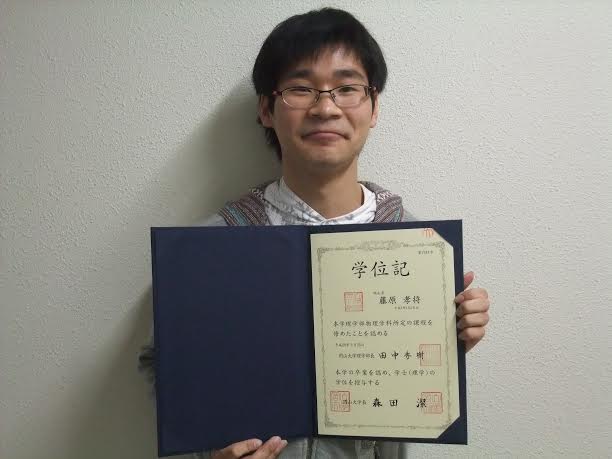 学位記
藤原 孝将
本学理学部物理学科所定の課程を
修めたことを認める
岡山大学理学部長 田中秀樹
本学の卒業を認め、学士(理学)の
学位を授与する
岡山大学長 森田 潔